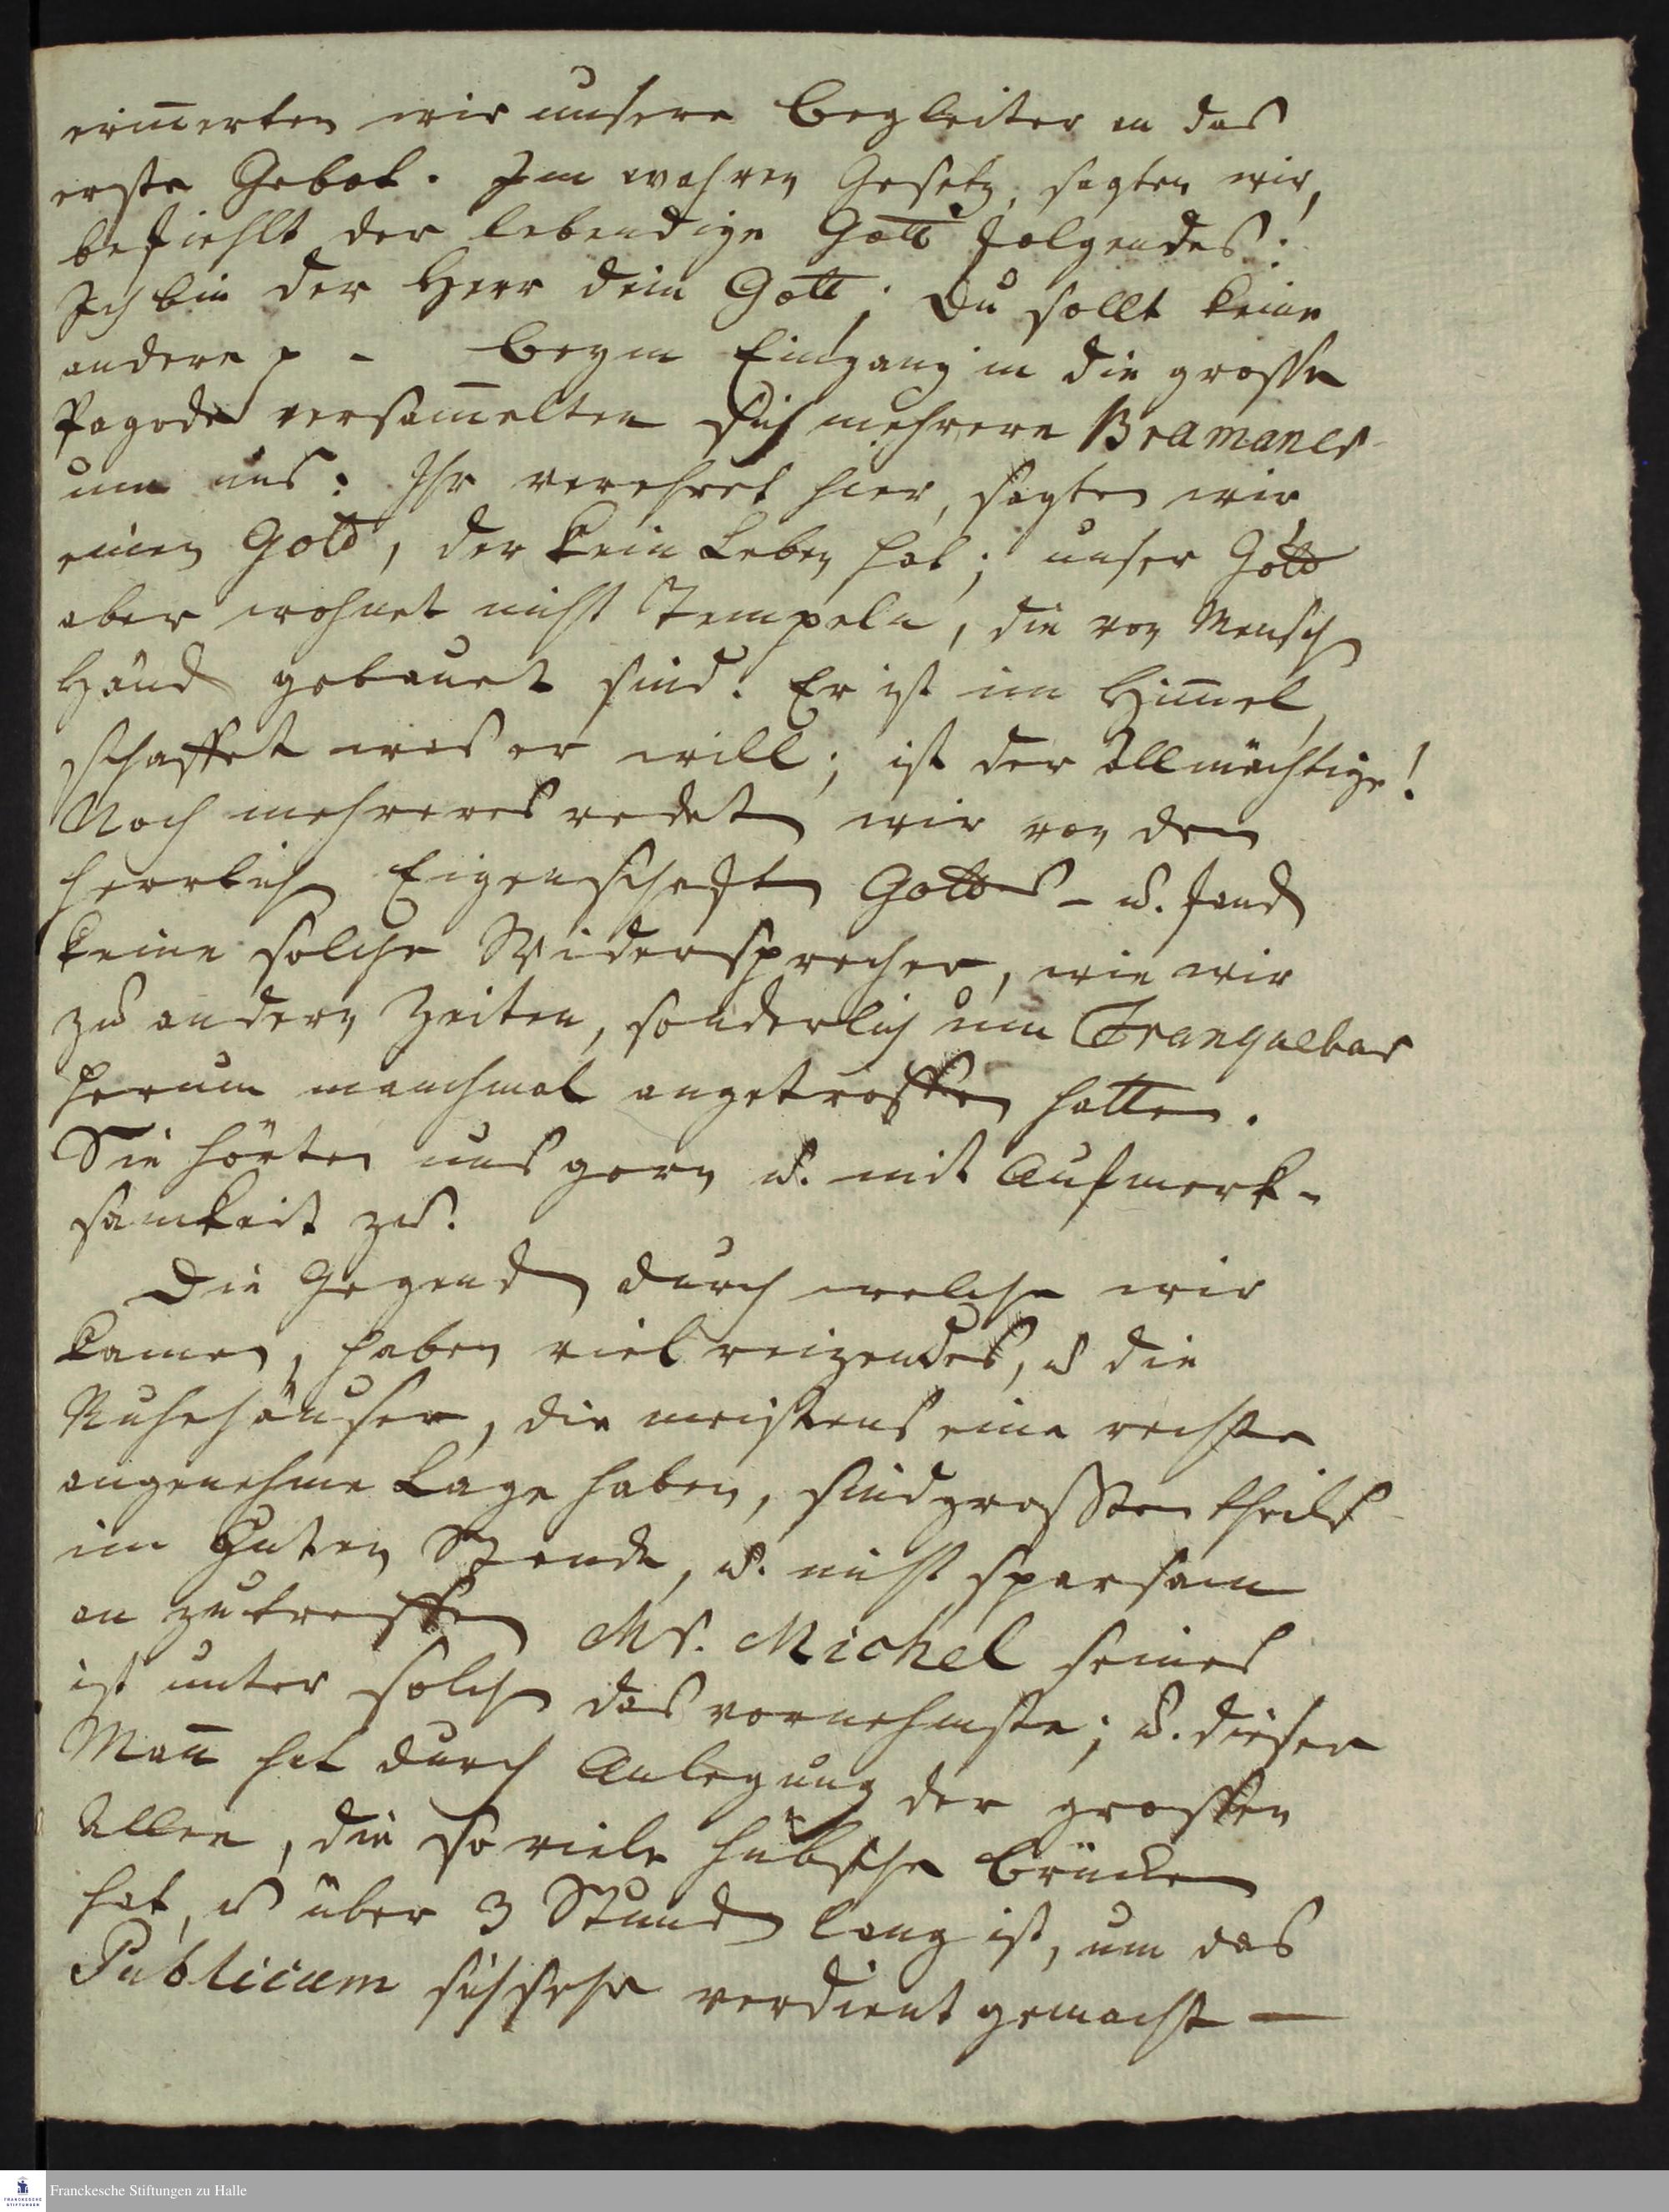 erin̄erten wir unsere Begleiter an das
erste Gebot. Im wahren Gesetz, sagten wir,
befiehlt der lebendige Gott folgendes:
Ich bin der Herr dein Gott; Du sollt keine
andere p - Beym Eingang in die grosse
Pagode versam̄elten sich mehrere Bramanes
um uns: Ihr verehret hier, sagten wir
einen Gott, der kein Leben hat; unser Gott
aber wohnet nicht Tempeln, die von Mensch
Händ gebauet sind. Er ist im Him̄el,
schaffet was er will; ist der Allmächtige!
Noch mehreres redeten wir von den
herrlichen Eigenschaften Gottes - u. fanden
keine solche Widersprecher, wie wir
zu andern Zeiten, sonderlich um Tranquebar
herum manchmal angetroffen hatten.
Sie hörten uns gern u. mit Aufmerk-
samkeit zu.
Die Gegenden durch welche wir
kamen, haben viel reizendes, u die
Ruhehäuser, die meistens eine rechte
angenehme Lage haben, sind grossten theils
im Guten Stande, u. nicht sparsam
an zutreffen Mr. Michel seines
ist unter solchen das vornehmste; u. dieser
Man̄ hat durch Anlegung der grossen
Allee, die so viele hübsche Brücken
hat, u über 3 Stunden lang ist, um das
Publicum sich sehr verdient gemacht —
Franckesche Stiftungen zu Halle
FRANCKESCHE
STIFTUNGEN